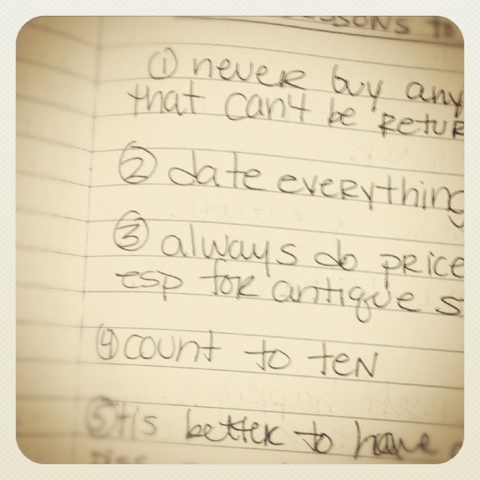 LESSONS to
① never buy any
that can't be retur
② date everything
③ always do price
esp for antique s
④ count to ten
⑤ tis better to have